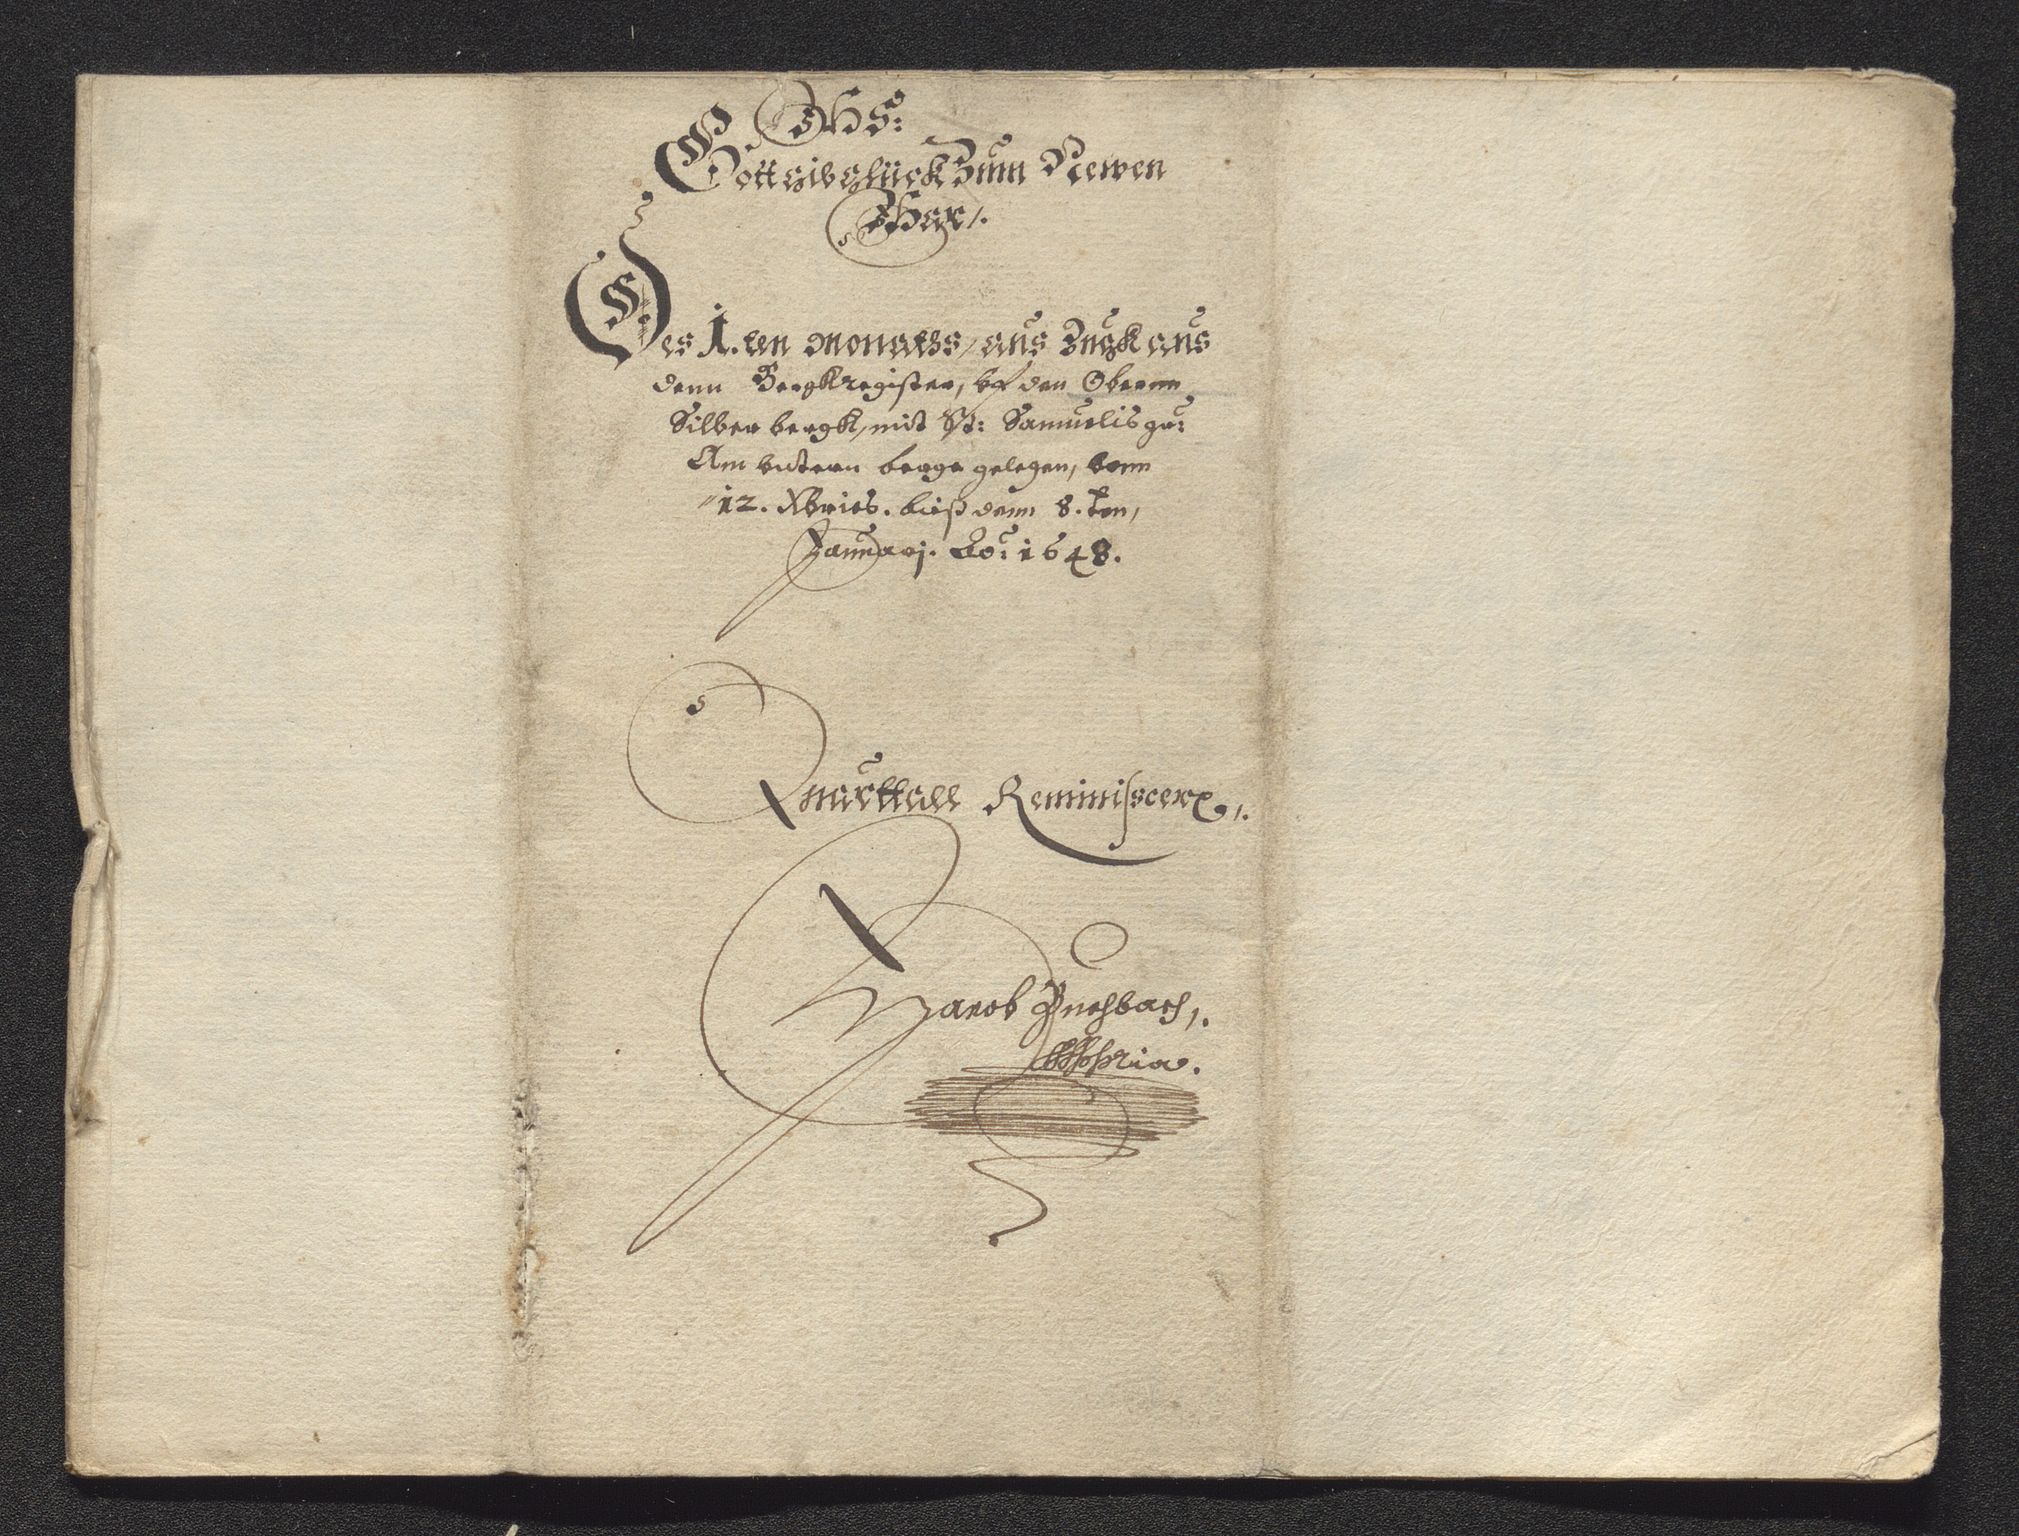 IHS:
Gott gib glück Zum Newen
Jhar/.
Des 1. ten Monaths, aus Zugk aus
denn Bergkregister, vf den Obernn
Silber bergk, mit St: Samuelis gr:
Am vntern berge gelegen, vonn
12. Xbris. bieß denn 8. ten,
Januarj. Ao: 1648.
Quarttall Reminiscere/.
Jacob Buchbach/.